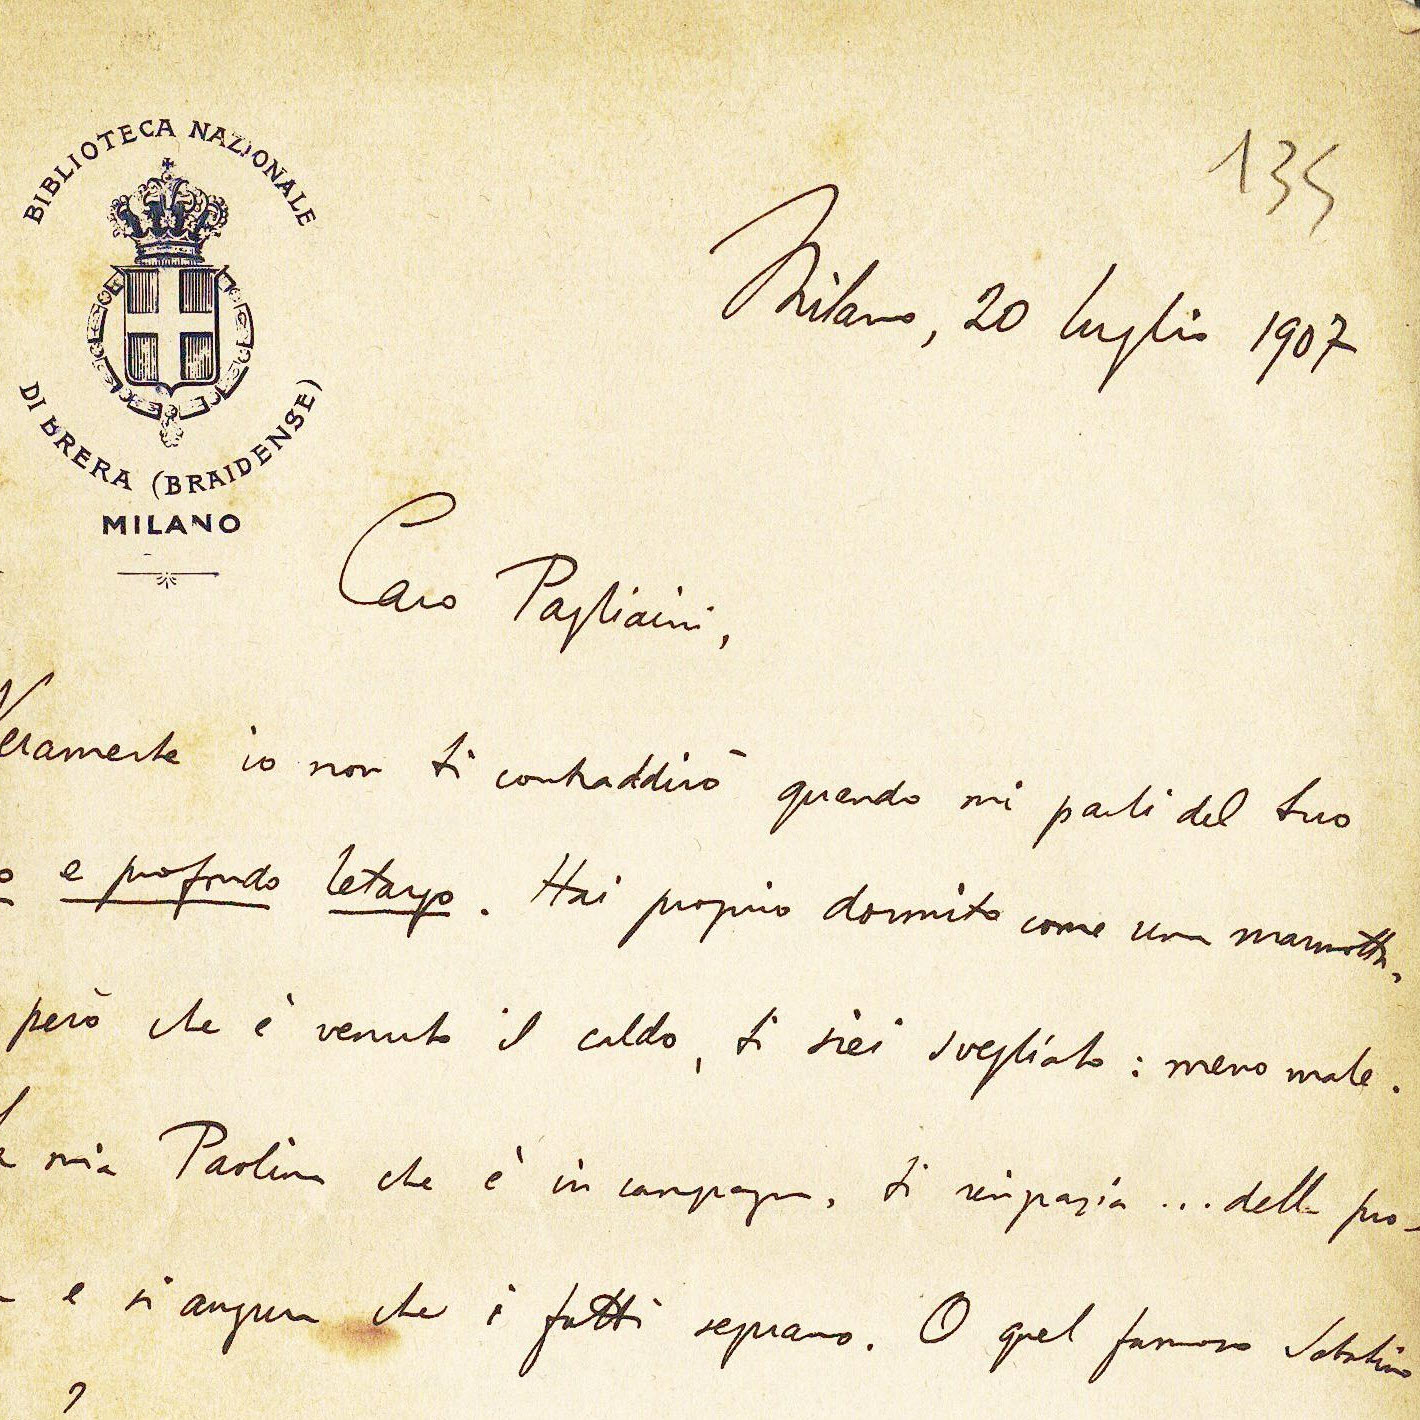 BIBLIOTECA NAZIONALE
DI BRERA (BRAIDENSE)
MILANO
135
Milano, 20 luglio 1907
Caro Pagliaini,
Veramente io non ti contraddirò quando mi parli del tuo
e profondo letargo. Hai proprio dormito come una marmotta.
però che è venuto il caldo, ti siei svegliato: meno male.
mia Paolina che è in campagna, ti ringrazia ... della pro-
e si augura che i fatti seguano. O quel famoso Sabatino
?